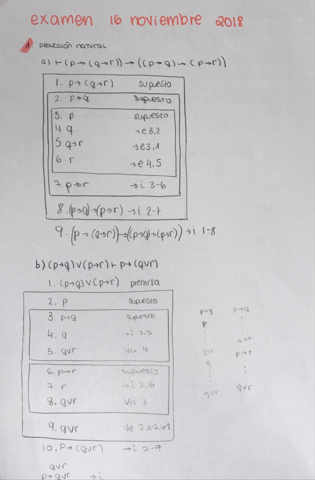 examen 16 noviembre 2018
1. DEDUCCIÓN NATURAL
a) ⊢(p→(q→r))→((p→q)→(p→r))
1. p→(q→r) supuesto
2. p→q supuesto
3. p supuesto
4. q →e3,2
5. q→r →e3,1
6. r →e 4,5
7. p→r →i 3-6
8. (p→q)→(p→r) →i 2-7
9. (p→(q→r))→((p→q)→(p→r)) →i 1-8
b) (p→q)∨(p→r)⊢p→(q∨r)
1. (p→q)∨(p→r) premisa
2. p supuesto
3. p→q supuesto
4. q →i 2,3
5. q∨r ∨i1 4
6. p→r supuesto
7. r →i 2,6
8. q∨r ∨i2 7
9. q∨r
10. p→(q∨r) →i 2-9
q∨r
p→q∨r →i
p→q p→q
p
q∨r
q∨r p→r
q
q∨r q∨r